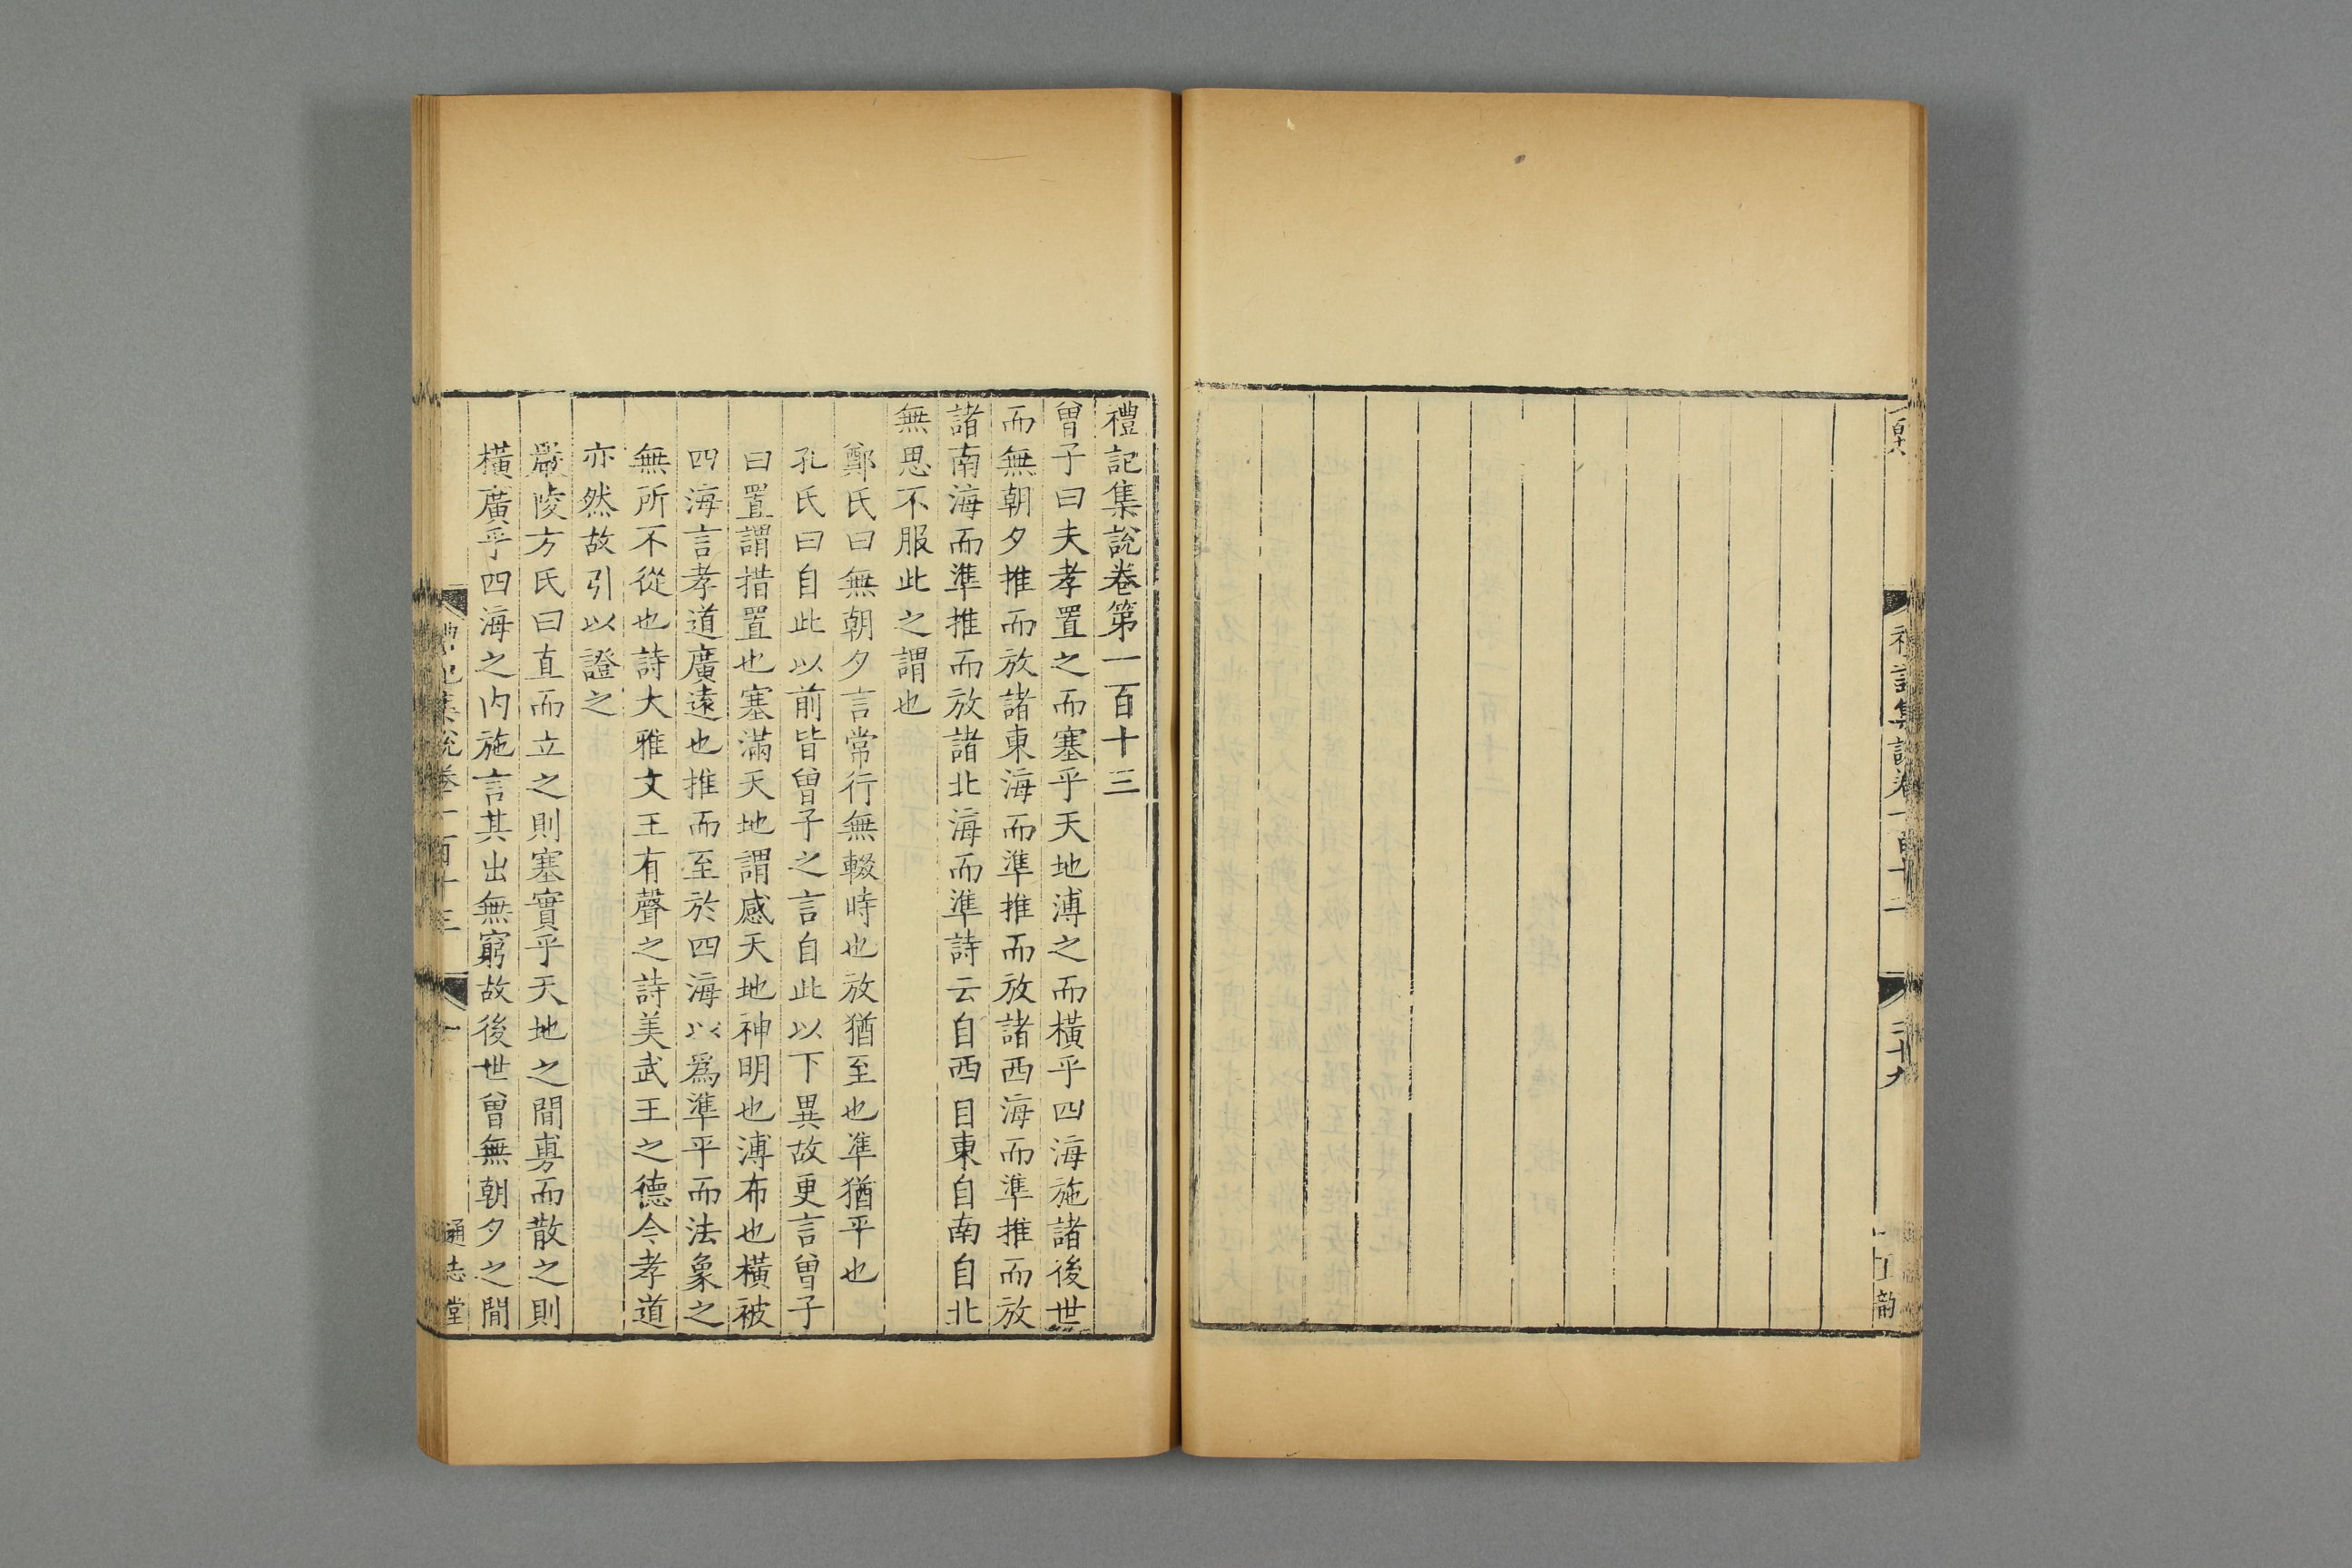 禮記集說卷第一百十三
曾子曰夫孝置之而塞乎天地溥之而橫乎四海施諸後世
而無朝夕推而放諸東海而準推而放諸西海而準推而放
諸南海而準推而放諸北海而準詩云自西自東自南自北
無思不服此之謂也
鄭氏曰無朝夕言常行無輟時也放猶至也準猶平也
孔氏曰自此以前皆曾子之言自此以下異故更言曾子
曰置謂措置也塞滿天地謂感天地神明也溥布也橫被
四海言孝道廣遠也推而至於四海以爲準平而法象之
無所不從也詩大雅文王有聲之詩美武王之德今孝道
亦然故引以證之
嚴陵方氏曰直而立之則塞實乎天地之間旉而散之則
橫廣乎四海之内施言其出無窮故後世曾無朝夕之間
禮記集說卷一百十三
一
通志堂
禮記集說卷一百十二
二十九